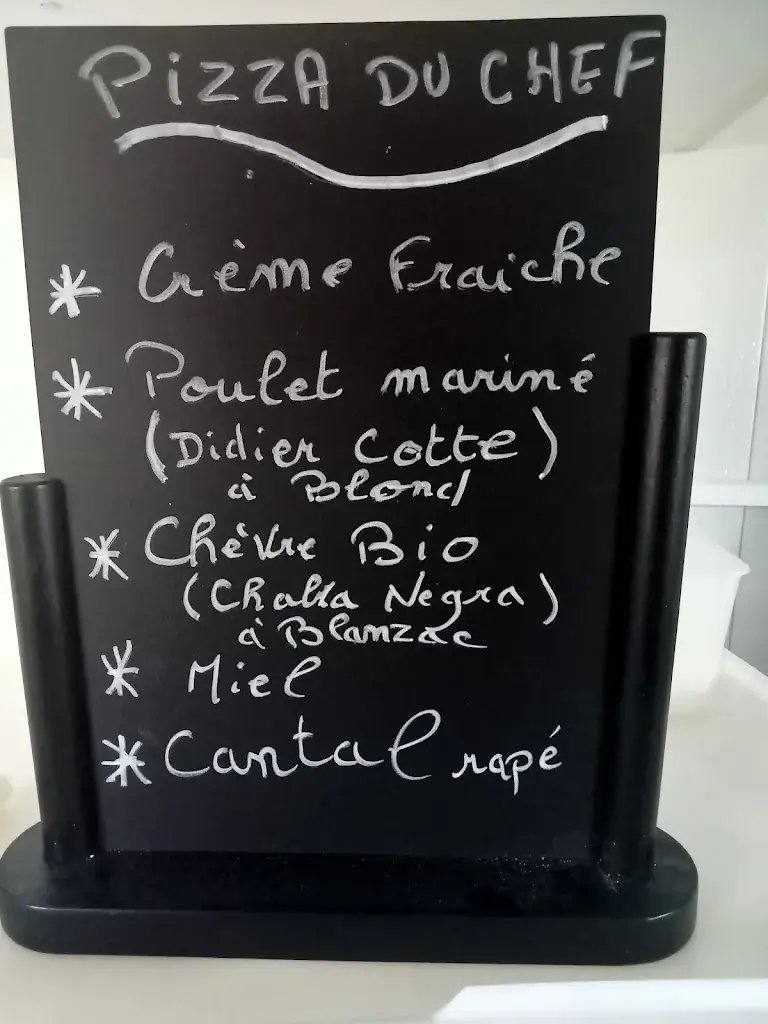 PIZZA DU CHEF
* Crème Fraiche
* Poulet mariné
(Didier Cotte)
à Blond
* Chèvre Bio
(Chabra Negra)
à Blanzac
* Miel
* Cantal rapé